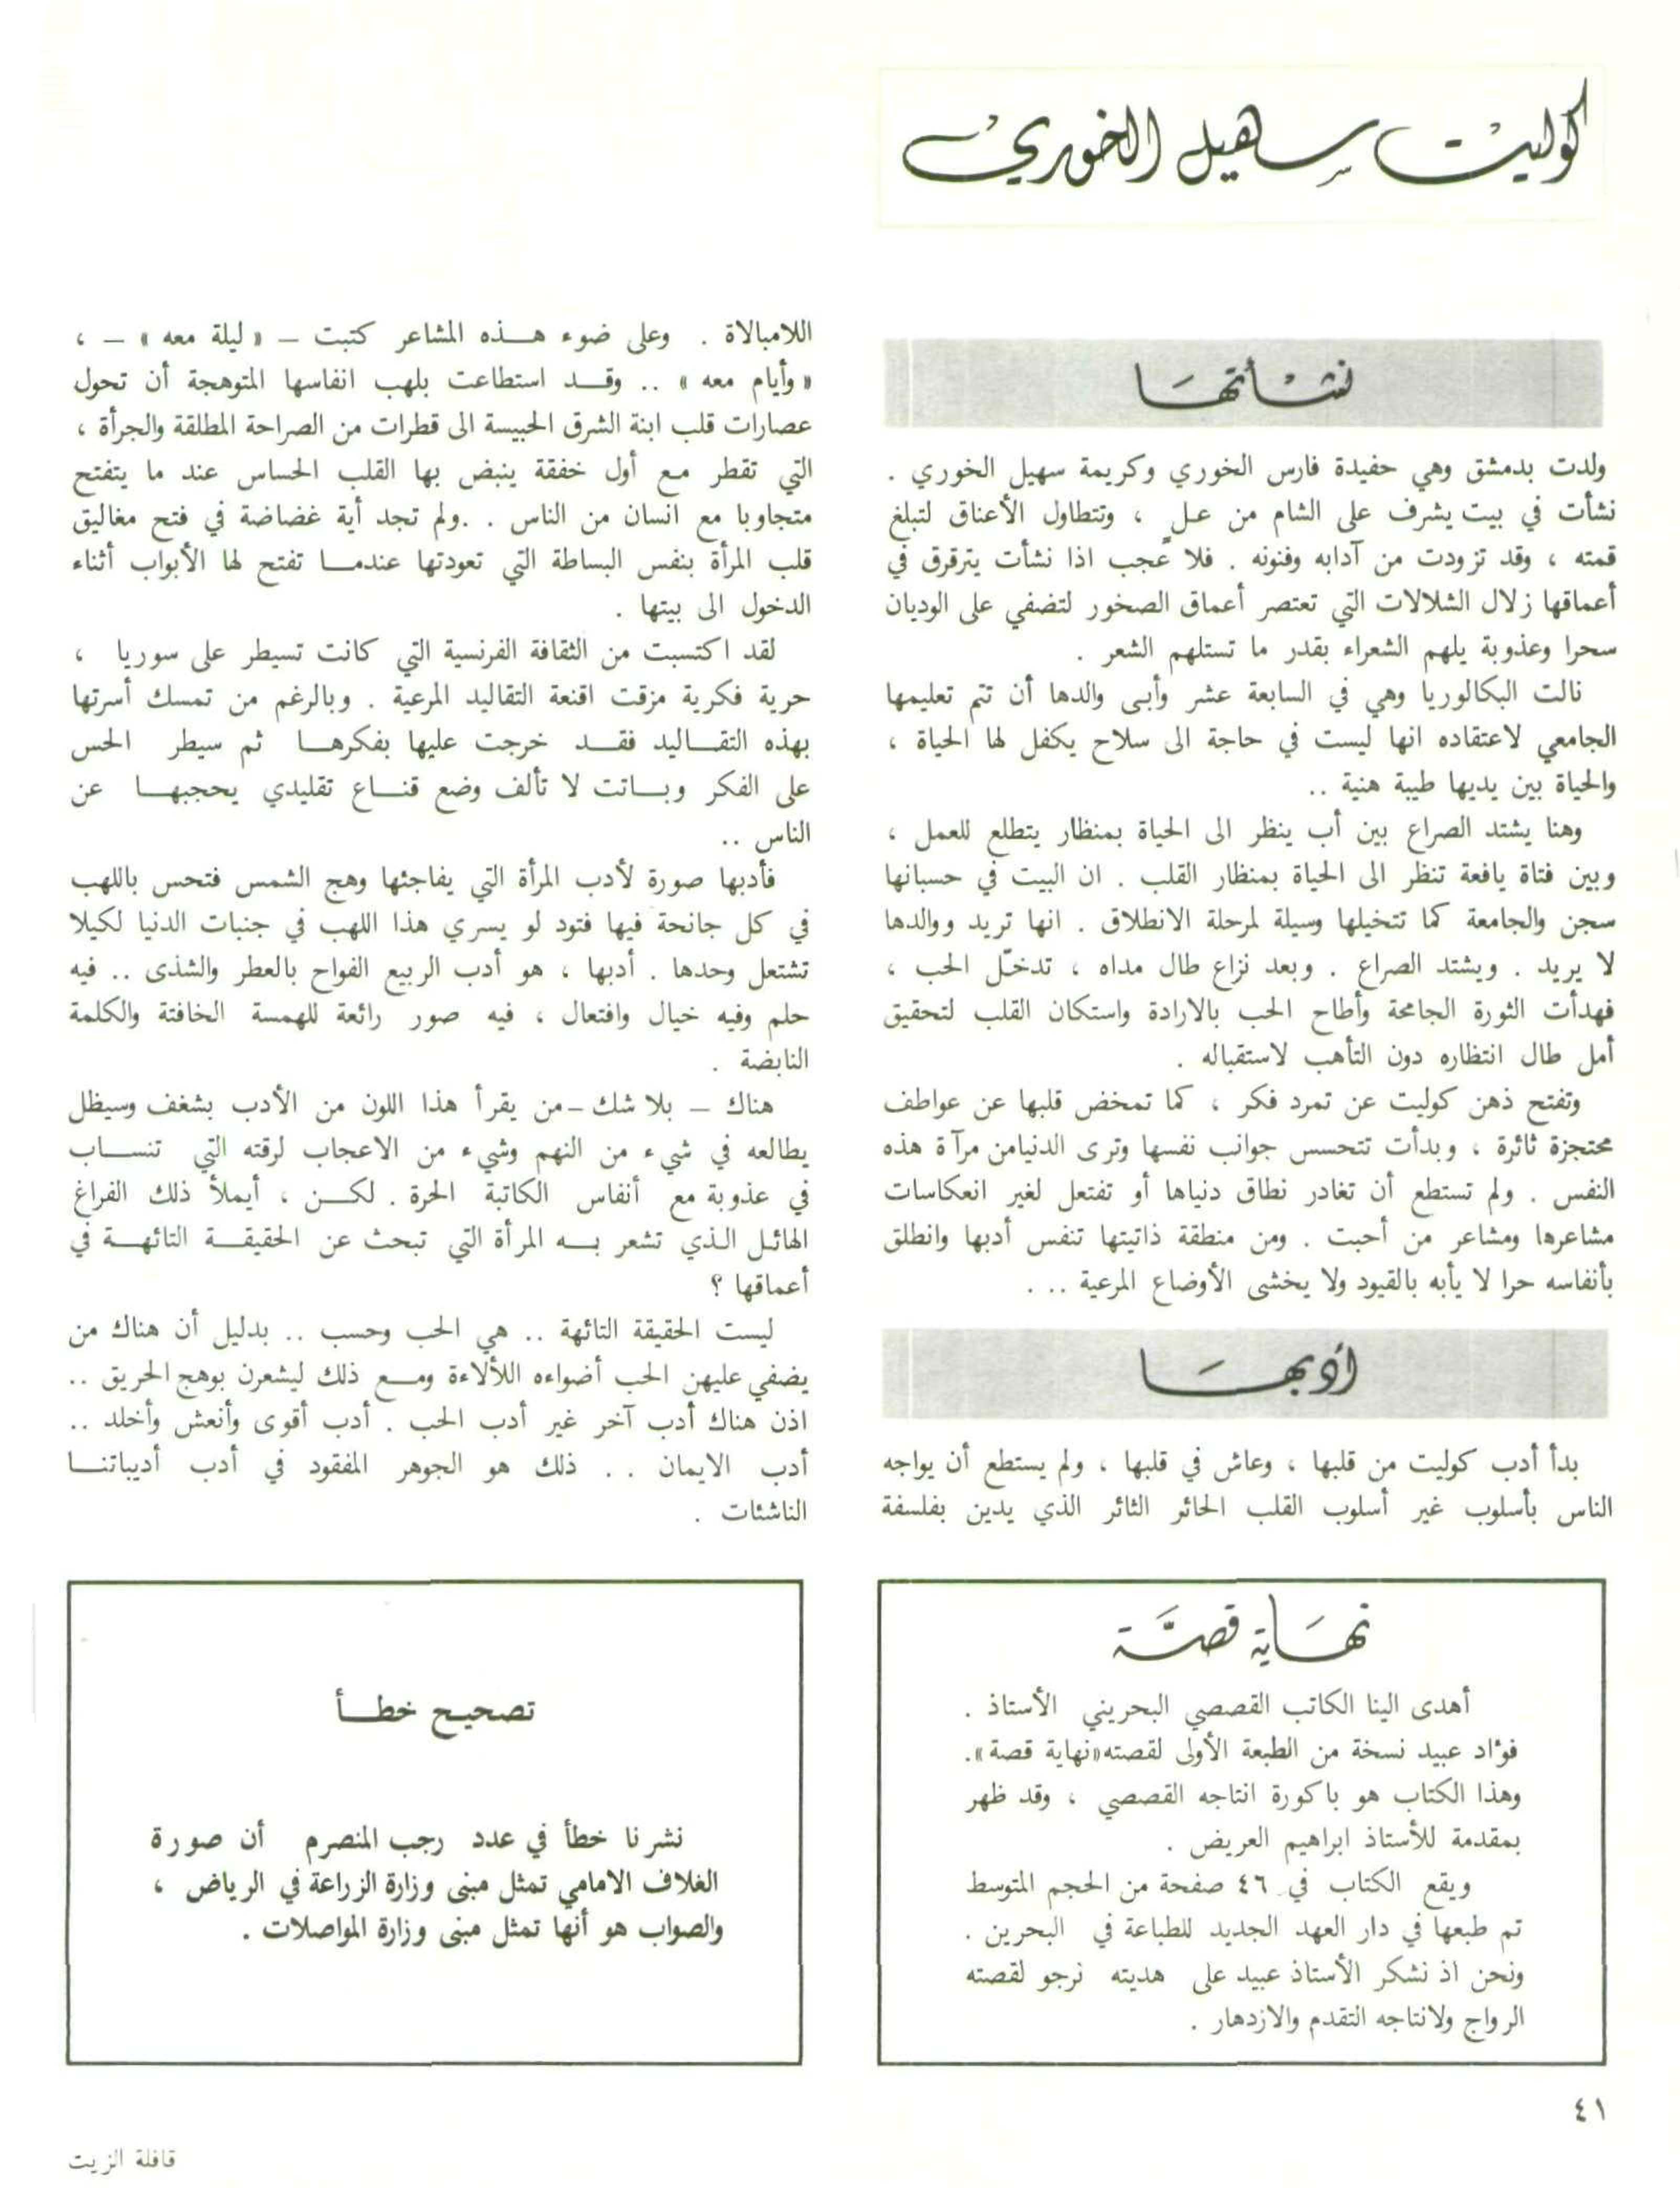 كوليت سهيل الخوري
نشأتها
ولدت بدمشق وهي حفيدة فارس الخوري وكريمة سهيل الخوري .
نشأت في بيت يشرف على الشام من عل ، وتتطاول الأعناق لتبلغ
قمته ، وقد تزودت من آدابه وفنونه . فلا عجب اذا نشأت يترقرق في
أعماقها زلال الشلالات التي تعتصر أعماق الصخور لتضفي على الوديان
سحرا وعذوبة يلهم الشعراء بقدر ما تستلهم الشعر .
نالت البكالوريا وهي في السابعة عشر وأبى والدها أن تتم تعليمها
الجامعي لاعتقاده انها ليست في حاجة الى سلاح يكفل لها الحياة ،
والحياة بين يديها طيبة هنية ..
وهنا يشتد الصراع بين أب ينظر الى الحياة بمنظار يتطلع للعمل ،
وبين فتاة يافعة تنظر الى الحياة بمنظار القلب . ان البيت في حسبانها
سجن والجامعة كما تتخيلها وسيلة لمرحلة الانطلاق . انها تريد ووالدها
لا يريد . ويشتد الصراع . وبعد نزاع طال مداه ، تدخّل الحب ،
فهدأت الثورة الجامحة وأطاح الحب بالارادة واستكان القلب لتحقيق
أمل طال انتظاره دون التأهب لاستقباله .
وتفتح ذهن كوليت عن تمرد فكر ، كما تمخض قلبها عن عواطف
محتجزة ثائرة ، وبدأت تتحسس جوانب نفسها وترى الدنيا من مرآة هذه
النفس . ولم تستطع أن تغادر نطاق دنياها أو تفتعل لغير انعكاسات
مشاعرها ومشاعر من أحبت . ومن منطقة ذاتيتها تنفس أدبها وانطلق
بأنفاسه حرا لا يأبه بالقيود ولا يخشى الأوضاع المرعية ...
أدبها
بدأ أدب كوليت من قلبها ، وعاش في قلبها ، ولم يستطع أن يواجه
الناس بأسلوب غير أسلوب القلب الحائر الثائر الذي يدين بفلسفة
اللامبالاة . وعلى ضوء هذه المشاعر كتبت – « ليلة معه » – ،
« وأيام معه » .. وقد استطاعت بلهب انفاسها المتوهجة أن تحول
عصارات قلب ابنة الشرق الحبيسة الى قطرات من الصراحة المطلقة والجرأة ،
التي تقطر مع أول خفقة ينبض بها القلب الحساس عند ما يتفتح
متجاوبا مع انسان من الناس . .ولم تجد أية غضاضة في فتح مغاليق
قلب المرأة بنفس البساطة التي تعودتها عندما تفتح لها الأبواب أثناء
الدخول الى بيتها .
لقد اكتسبت من الثقافة الفرنسية التي كانت تسيطر على سوريا ،
حرية فكرية مزقت اقنعة التقاليد المرعية . وبالرغم من تمسك أسرتها
بهذه التقاليد فقد خرجت عليها بفكرها ثم سيطر الحس
على الفكر وباتت لا تألف وضع قناع تقليدي يحجبها عن
الناس ..
فأدبها صورة لأدب المرأة التي يفاجئها وهج الشمس فتحس باللهب
في كل جانحة فيها فتود لو يسري هذا اللهب في جنبات الدنيا لكيلا
تشتعل وحدها . أدبها ، هو أدب الربيع الفواح بالعطر والشذى .. فيه
حلم وفيه خيال وافتعال ، فيه صور رائعة للهمسة الخافتة والكلمة
النابضة .
هناك – بلا شك – من يقرأ هذا اللون من الأدب بشغف وسيظل
يطالعه في شيء من النهم وشيء من الاعجاب لرقته التي تنساب
في عذوبة مع أنفاس الكاتبة الحرة . لكن ، أيملأ ذلك الفراغ
الهائل الذي تشعر به المرأة التي تبحث عن الحقيقة التائهة في
أعماقها ؟
ليست الحقيقة التائهة .. هي الحب وحسب .. بدليل أن هناك من
يضفي عليهن الحب أضواءه اللألاءة ومع ذلك ليشعرن بوهج الحريق ..
اذن هناك أدب آخر غير أدب الحب . أدب أقوى وأنعش وأخلد ..
أدب الايمان .. ذلك هو الجوهر المفقود في أدب أديباتنا
الناشئات .
نهاية قصة
أهدى الينا الكاتب القصصي البحريني الأستاذ .
فؤاد عبيد نسخة من الطبعة الأولى لقصته «نهاية قصة».
وهذا الكتاب هو باكورة انتاجه القصصي ، وقد ظهر
بمقدمة للأستاذ ابراهيم العريض .
ويقع الكتاب في ٤٦ صفحة من الحجم المتوسط
تم طبعها في دار العهد الجديد للطباعة في البحرين .
ونحن اذ نشكر الأستاذ عبيد على هديته نرجو لقصته
الرواج ولانتاجه التقدم والازدهار .
تصحيح خطأ
نشرنا خطأ في عدد رجب المنصرم أن صورة
الغلاف الامامي تمثل مبنى وزارة الزراعة في الرياض ،
والصواب هو أنها تمثل مبنى وزارة المواصلات .
٤١
قافلة الزيت